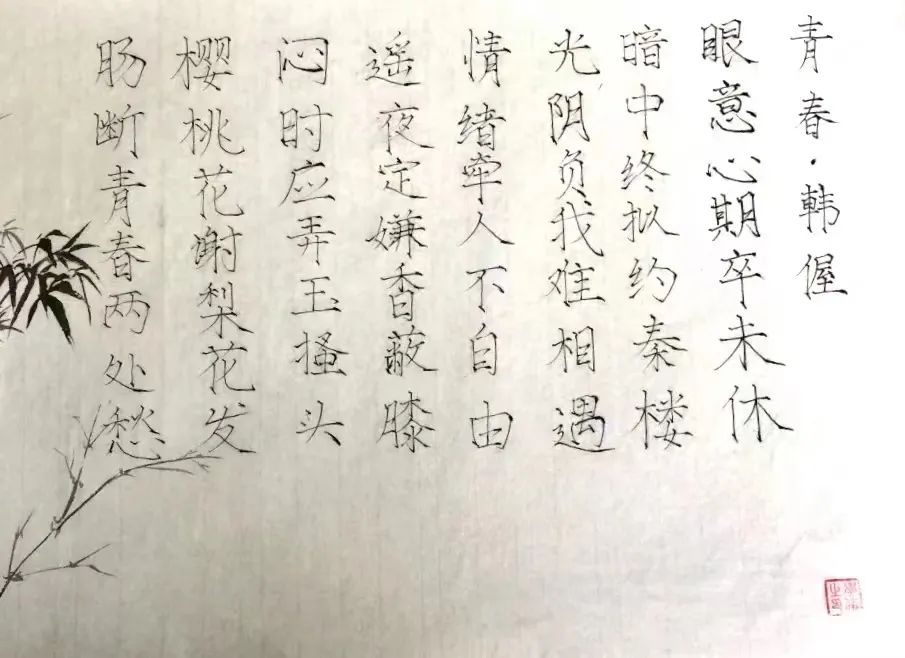 青春·韩偓
眼意心期卒未休
暗中终拟约秦楼
光阴负我难相遇
情绪牵人不自由
遥夜定嫌香蔽膝
闷时应弄玉搔头
樱桃花谢梨花发
肠断青春两处愁